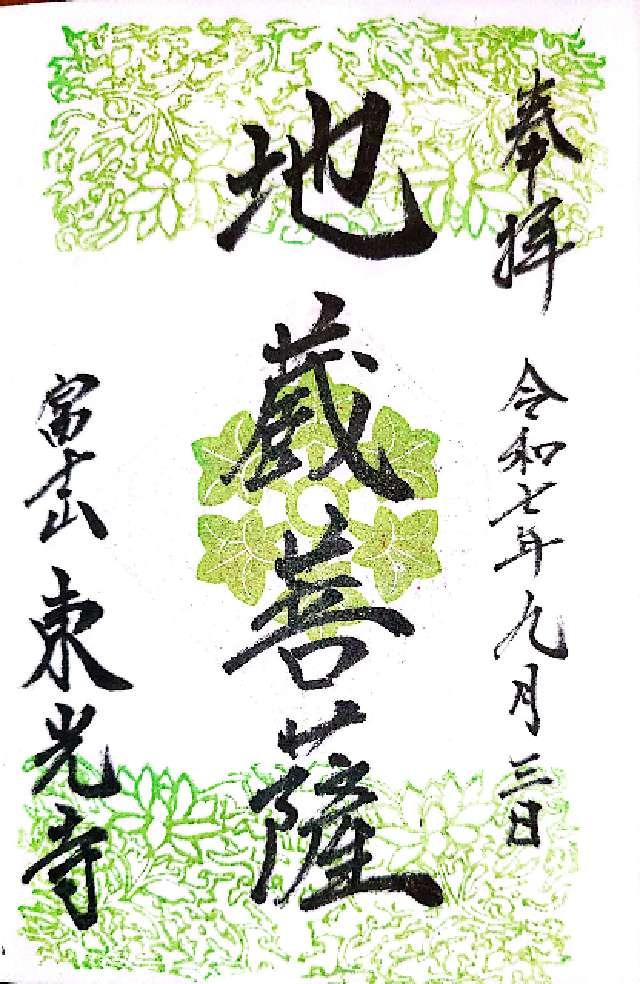 奉拝
令和七年九月三日
地蔵菩薩
富士山
東光寺